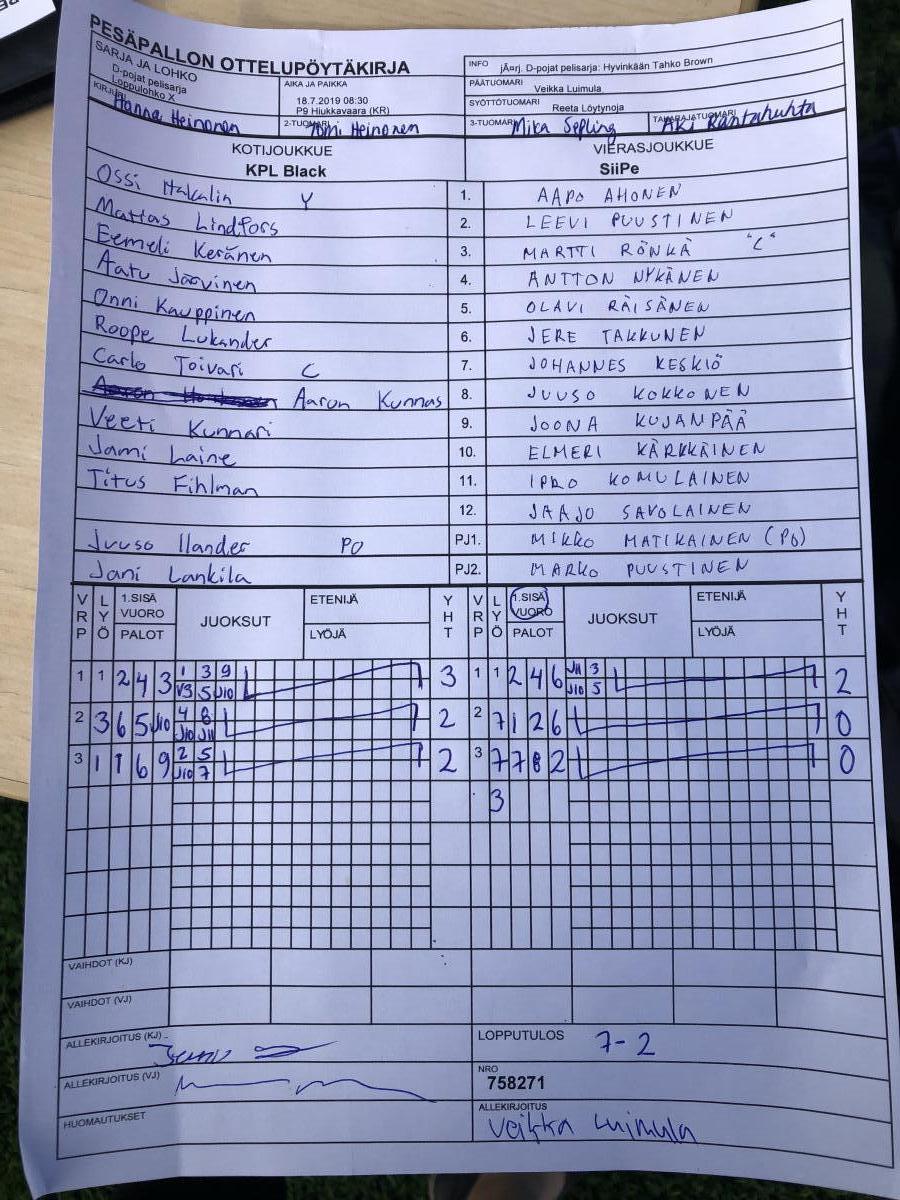 PESÄPALLON OTTELUPÖYTÄKIRJA
SARJA JA LOHKO
D-pojat pelisarja
Loppulohko X
AIKA JA PAIKKA
18.7.2019 08:30
P9 Hiukkavaara (KR)
INFO jÃ¤rj. D-pojat pelisarja: Hyvinkään Tahko Brown
PÄÄTUOMARI
Veikka Luimula
SYÖTTÖTUOMARI
Reeta Löytynoja
KIRJURI Hanna Heinonen
2-TUOMARI Tomi Heinonen
3-TUOMARI Mika Sepling
TAKARAJATUOMARI Aki Rantahuhta
KOTIJOUKKUE
KPL Black
VIERASJOUKKUE
SiiPe
Ossi Hakalin Y 1. AAPO AHONEN
Mattas Lindfors 2. LEEVI PUUSTINEN
Eemeli Keränen 3. MARTTI RÖNKÄ "C"
Aatu Joovinen 4. ANTTON NYKÄNEN
Onni Kauppinen 5. OLAVI RÄISÄNEN
Roope Lukander 6. JERE TAKKUNEN
Carlo Toivari C 7. JOHANNES KESKIÖ
Aaron Kunnas 8. JUUSO KOKKONEN
Veeti Kunnari 9. JOONA KUJANPÄÄ
Jami Laine 10. ELMERI KÄRKKÄINEN
Titus Fihlman 11. IPRO KOMULAINEN
12. JAAJO SAVOLAINEN
Juuso Ilander PO PJ1. MIKKO MATIKAINEN (PO)
Jani Lankila PJ2. MARKO PUUSTINEN
VRP LYÖ 1.SISÄ VUORO PALOT JUOKSUT ETENIJÄ LYÖJÄ YHT VRP LYÖ 1.SISÄ VUORO PALOT JUOKSUT ETENIJÄ LYÖJÄ YHT
1 1 2 4 3 1 3 9 3 1 1 2 4 6 J11 3 2
V3 5 J10 J10 5
2 3 6 5 J10 4 8 2 2 7 1 2 6 0
J10 J11
3 1 1 6 9 2 5 2 3 7 7 8 2 0
J10 7
3
VAIHDOT (KJ)
VAIHDOT (VJ)
ALLEKIRJOITUS (KJ)
LOPPUTULOS 7-2
ALLEKIRJOITUS (VJ)
NRO
758271
HUOMAUTUKSET
ALLEKIRJOITUS
Veikka Luimula